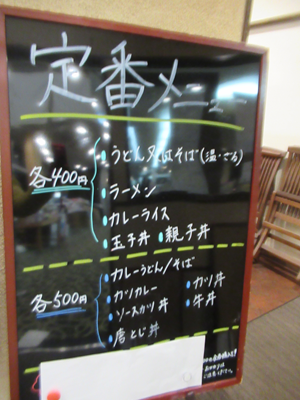 定番メニュー
各400円
うどん又はそば(温・ざる)
ラーメン
カレーライス
玉子丼 親子丼
各500円
カレーうどん/そば
カツカレー カツ丼
ソースカツ丼 牛丼
唐とじ丼